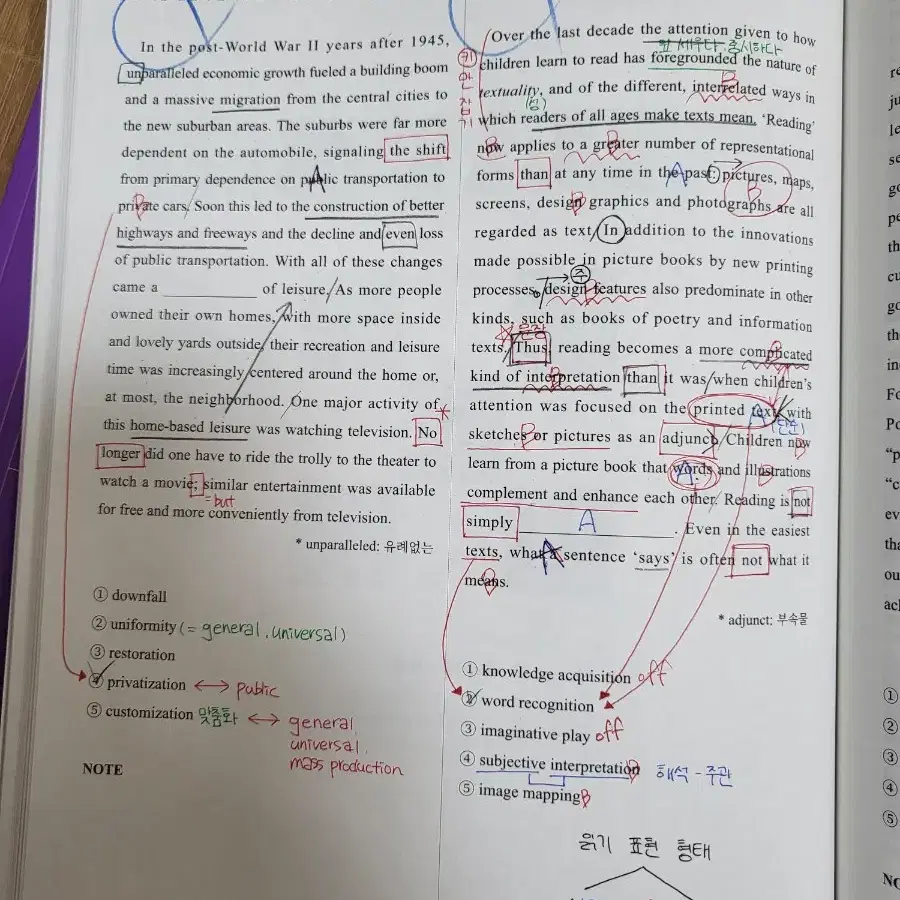 In the post-World War II years after 1945,
unparalleled economic growth fueled a building boom
and a massive migration from the central cities to
the new suburban areas. The suburbs were far more
dependent on the automobile, signaling the shift
from primary dependence on public transportation to
private cars. Soon this led to the construction of better
highways and freeways and the decline and even loss
of public transportation. With all of these changes
came a ____________ of leisure. As more people
owned their own homes, with more space inside
and lovely yards outside, their recreation and leisure
time was increasingly centered around the home or,
at most, the neighborhood. One major activity of
this home-based leisure was watching television. No
longer did one have to ride the trolly to the theater to
watch a movie; similar entertainment was available
= but
for free and more conveniently from television.
* unparalleled: 유례없는
① downfall
② uniformity (= general, universal)
③ restoration
④ privatization ↔ public
⑤ customization 맞춤화 ↔ general
universal.
mass production
NOTE
Over the last decade the attention given to how
앞 세우다, 중시하다
children learn to read has foregrounded the nature of
textuality, and of the different, interrelated ways in
which readers of all ages make texts mean. ‘Reading’
now applies to a greater number of representational
forms than at any time in the past: pictures, maps,
screens, design graphics and photographs are all
regarded as text. In addition to the innovations
made possible in picture books by new printing
주
processes, design features also predominate in other
kinds, such as books of poetry and information
texts. Thus, reading becomes a more complicated
kind of interpretation than it was when children’s
attention was focused on the printed text, with
sketches or pictures as an adjunct. Children now
learn from a picture book that words and illustrations
complement and enhance each other. Reading is not
simply ____________. Even in the easiest
A
texts, what a sentence ‘says’ is often not what it
means.
* adjunct: 부속물
① knowledge acquisition off
② word recognition
③ imaginative play off
④ subjective interpretation 해석 - 주관
⑤ image mapping B
읽기 표현 형태